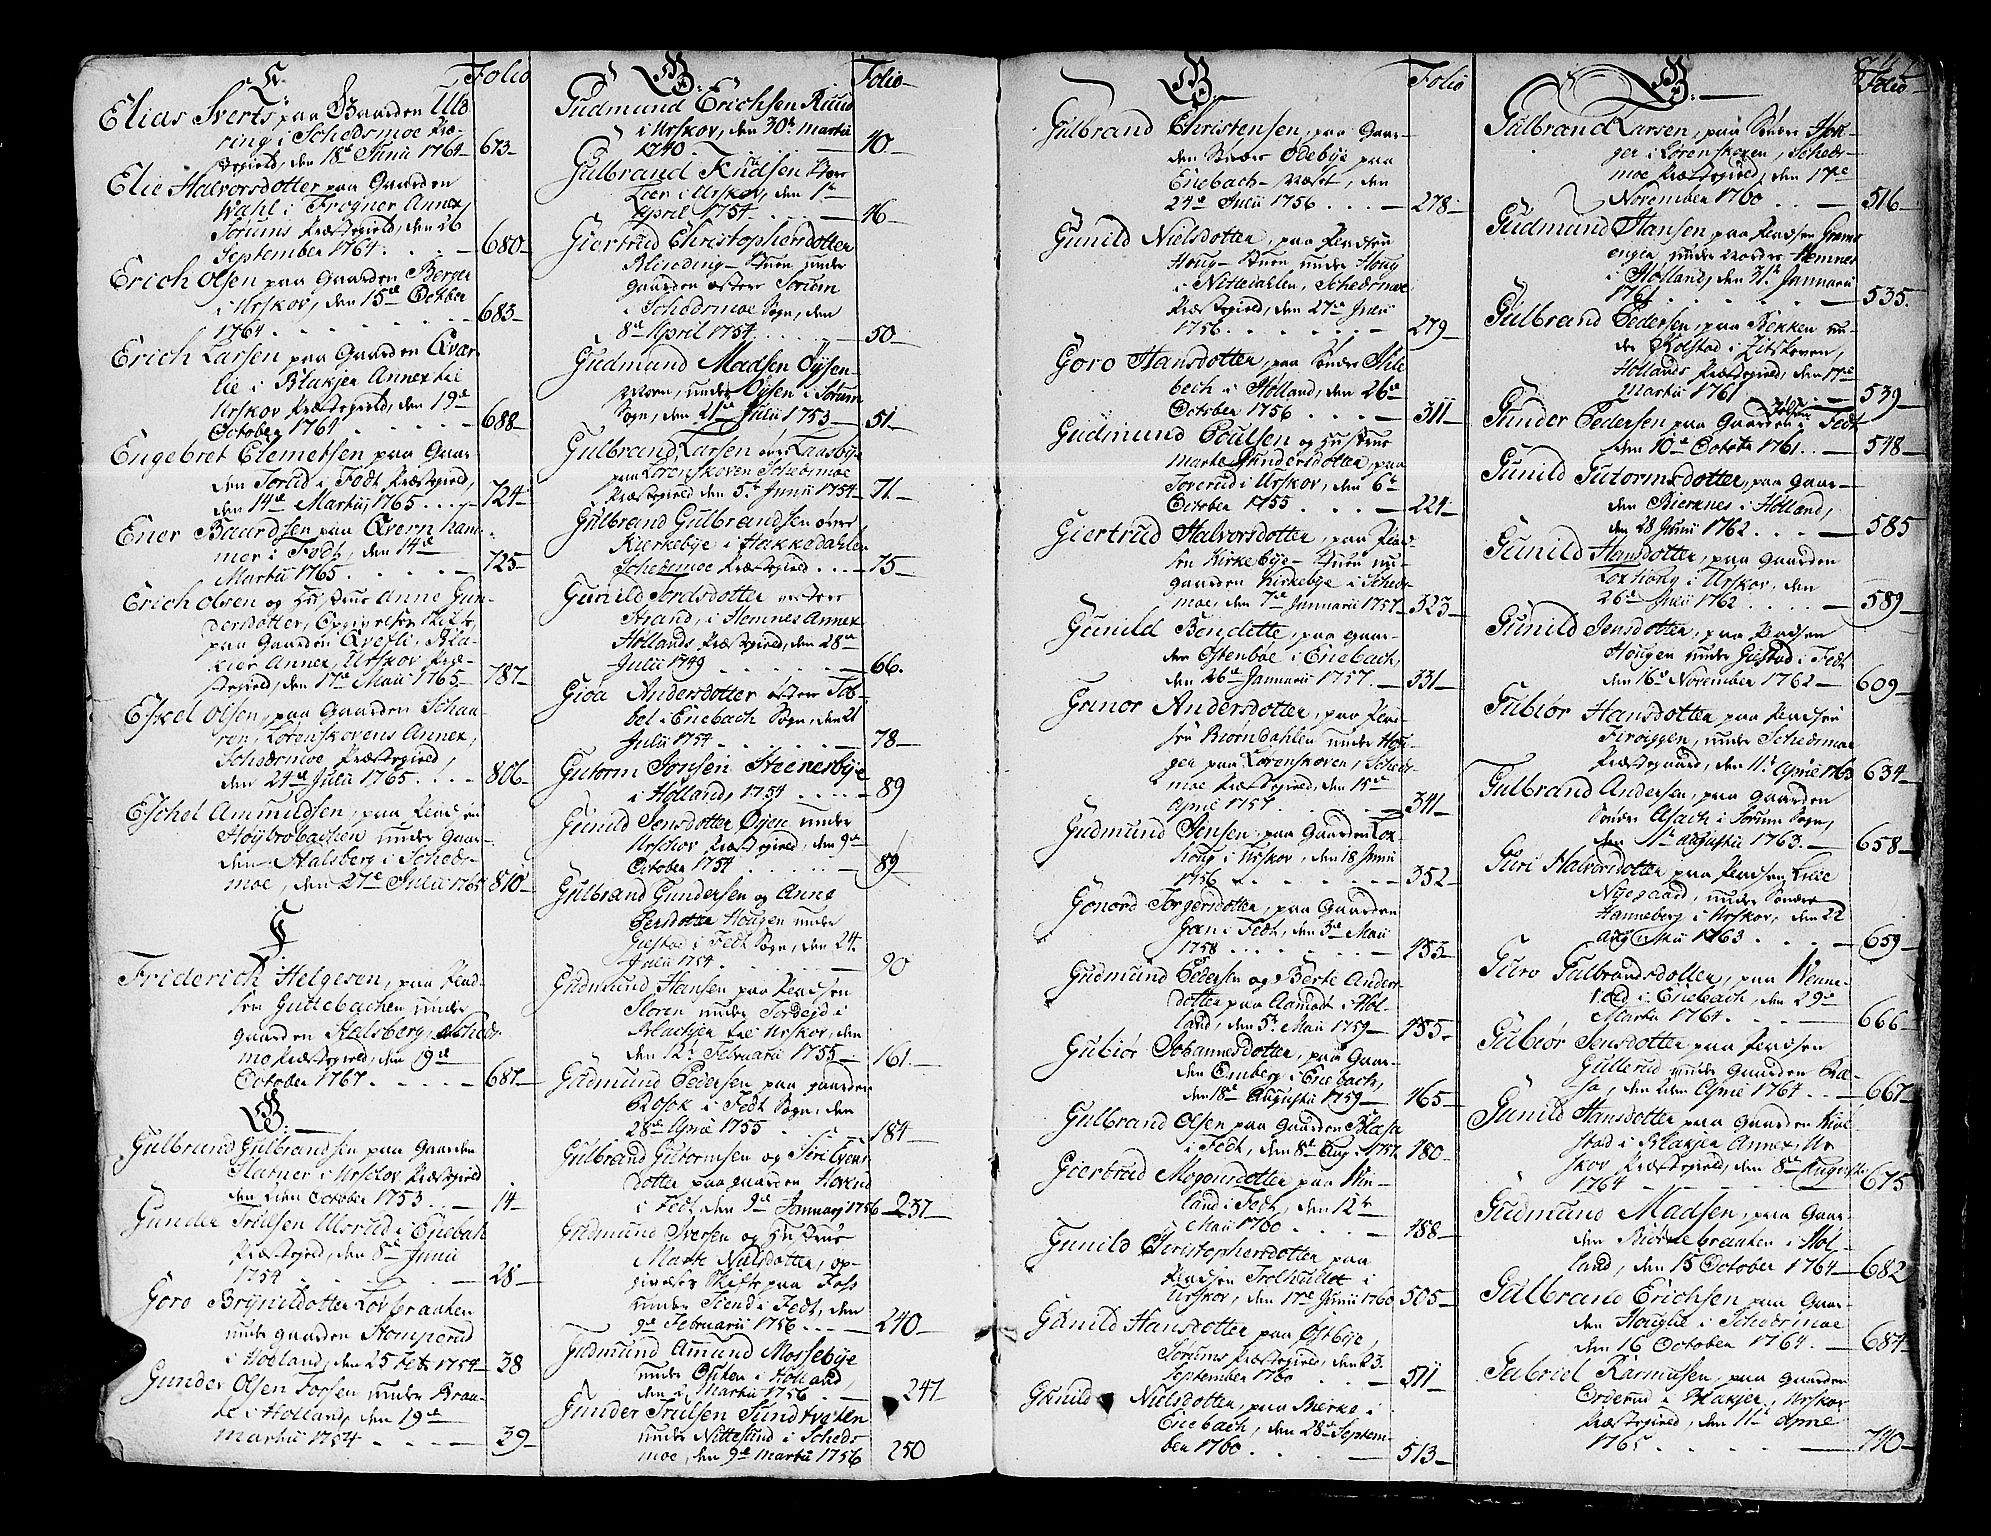 E. Folio
Elias Iverts paa Gaarden Ulb
ring i Schedsmoe Præ-
stegield, den 18de Junii 1764 673
Elie Halvorsdotter paa Gaarden
Wahl i Frogner Annex,
Sørums Præstegield, den 26
September 1764 680
Erich Olsen paa Gaarden Berger
i Urskov, den 15de October
1764 683
Erich Larsen paa Gaarden Qvær
lie i Blakjer Annex til
Urskov Præstegield, den 19de
October 1764 688
Engebret Clemetsen paa Gaar
den Sorlid i Fedt Præstegield,
den 14de Martii 1765 724
Ener Baardsen paa Qvern ham
mer i Fedt, den 14de
Martii 1765 725
Erich Olsen og Hustrue Anne Gun
dersdotter, Opgivelses Skifte,
paa Gaarden Qvefli, Bla
kier Annex, Urskov Præ
stegield, den 17de Maii 1765 787
Eskel Olsen, paa Gaarden Schaa
ren, Lørenskovens Annex,
Schedsmoe Præstegield
den 24de Julii 1765 806
Eschel Ammundsen, paa Pladsen
Høybrobachen under Gaar
den Halsberg i Scheds
moe, den 27de Julii 1765 810
F.
Friderich Helgesen, paa Plad
sen Guttebachen under
gaarden Halsberg, Scheds
mo Præstegield, den 19de
October 1767 687
G.
Gulbrand Gulbrandsen paa Gaarden
Flatner i Urschov Præstegield
den 2den October 1753 14
Gunder Troelsen Ulorud i Enebak
Præstegield, den 8de Junii
1754 28
Goro Brynildotter Lovbraaten
under gaarden Stomperud
i Høeland, den 25 Feb 1754 38
Gunder Olsen Forsen under Braa
te i Holland, den 19de
Martii 1754 39
G. Folio
Gudmund Erichsen Ruud
i Urskov, den 30te Martii
1740 40
Gulbrand Knudsen Store
Lier i Urskov, den 1te
April 1754 46
Giertrud Christophersdotter
Blinding Stuen under
gaarden østere Sørum
i Schedsmoe Sogn, den
8de April 1754 50
Gudmund Madsen Oyjen
Moen, under Oyjen i Sørum
Sogn, den 21de Julii 1753 51
Gulbrand Larsen øvre Laasbye
paa Lørenskoven Schedsmoe
Præstegield den 5te Junii 1754 71
Gulbrand Gulbrandsen øvre
Kierkebye i Hakkedahlen
Schedsmoe Præstegield 75
Gunild Tordsdotter vestere
Strand, i Hemnes Annex
Hollands Præstegield, den 28de
Julii 1749 66
Gioa Andersdotter østere Tob
bel i Enebach Sogn, den 21
Julii 1754 78
Gutorm Jonsen Steinesbye
i Holland, 1754 89
Gunild Jensdotter Oyen under
Urschov Præstegield, den 9de
October 1754 89
Gulbrand Gundersen og Anne
Persdotter Hougen under
Gielstad i Fedt Sogn, den 24
Julii 1754 90
Gudmund Hansen paa Pladsen
Floren under Tordejd i
Blachjer til Urskov, den
den 12te Februarii 1755 161
Gudmund Pedersen paa gaarden
Rosok i Fedt Sogn, den
28de April 1755 184
Gulbrand Gutormsen og Siri Evens
dotter paa gaarden Hovind
i Fedt, den 9de Januarj 1756 237
Gudmund Iversen og Hustrue
Marte Nielsdotter, op-
givelses Skifte paa Foss
under Tiend i Fedt, den
9de Februarii 1756 240
Gudmund Amund Mossebye
under Opken i Holland,
den 2 Martii 1756 247
Gunder Troelsen Sundtvaten
under Nittesund i Scheds
moe, den 9de Martii 1756 250
G. Folio
Gulbrand Christensen, paa Gaar
den Nordre Odebye paa
Enebach Næset, den
24de Julii 1756 278
Gunild Nielsdotter, paa Pladsen
Houg Stuen under Houg
i Nittedahlen, Schedsmoe
Præstegield, den 27de Julii
1756 279
Goro Hansdotter, paa Søndre Ihle
bech i Holland, den 26de
October 1756 311
Gudmund Poulsen og Hustrue
Marte Gundersdotter, paa
Toverud i Urskov, den 6te
October 1755 224
Giertrud Halvorsdotter, paa Plad
sen Kirkebye Stuen un
gaarden Kirkebye i Scheds
moe, den 7de Januarii 1757 323
Gunild Bendette, paa gaar
den Østenbøe i Enebach,
den 26de Januarii 1757 331
Gunor Andersdotter, paa Plad
sen Biørndahlen under Hou
gen paa Lørenskoven, Scheds
moe Præstegield, den 15de
April 1757 341
Gudmund Jensen, paa Gaarden Lox
houg i Urskov, den 18 Junii
1756 352
Gonord Torgersdotter, paa Gaarden
Jan i Fedt, den 3de Maii
1758 453
Gudmund Pedersen og Berte Ander
dotter paa Aamodt i Hol
land, den 5te Maii 1759 455
Gubiør Johannesdotter, paa Gaar
den Emberg i Enebach,
den 18de Augustii 1759 465
Gulbrand Olsen, paa Gaarden Blæsa
i Fedt, den 8de Aug: 1757 480
Giertrud Mogensdotter, paa Min
land i Fedt, den 12te
Maii 1760 488
Gunild Christophersdotter paa
Pladsen Trolhullet i
Urskov, den 17de Junii 1760 505
Gunild Hansdotter paa Østbye,
Sørums Præstegield, den 23
September 1760 511
Gunild Nielsdotter, paa Bierke i
Enebach, den 28de Septem
ber 1760 513
G. Folio
Gulbrand Larsen, paa Søndre Høk
ger i Lørenskoven, Scheds
moe Præstegield, den 17de
November 1760 516
Gudmund Hansen paa Pladsen Grønne
engen under Nordre Hemnes
i Holland, den 31te Januarii
1761 535
Gulbrand Pedersen, paa Bekken un
der Kolstad i Zitskoven,
Hollands Præstegield, den 17de
Martii 1761 539
Gunder Pedersen paa Gaarden i Fedt
den 10de Octobr 1761 548
Gunild Gutormsdotter, paa Gaar
den Bierknes i Holland,
den 28 Junii 1762 585
Gunild Hansdotter, paa Gaarden
Loxhoug i Urskov, den
26de Julii 1762 589
Gunild Jensdotter, paa Pladsen
Hougen under Gielstad i Fedt
den 16de November 1762 609
Gubiør Hansdotter paa Pladsen
Tiroiggen, under Schedsmoe
Præstegaard, den 11te April 1763 634
Gulbrand Andersen, paa Gaarden
Søndre Asach i Sørum Sogn,
den 11te Augustii 1763 658
Guri Halvorsdotter paa Pladsen Lille
Nyegaard, under Søndre
Hanneberg i Urskov, den 22
Aug 1763 659
Guro Gulbrandsdotter, paa Wenne
vold i Enebach, den 29de
Martii 1764 666
Gubiør Jensdotter paa Pladsen
Gullerud under Gaarden Ræ
sa, den 2den April 1764 667
Gunild Hansdotter paa Gaarden Kiøl
stad i Blakjer Annex, Ur
skov Præstegield, den 8de Augustii
1764 675
Gudmund Madsen, paa Gaar
den Biørnebraaten i Hol
land, den 15 October 1764 682
Gulbrand Erichsen, paa Gaar
den Hougli i Schedsmoe
den 16 October 1764 684
Gabriel Rasmusen, paa Gaarden
Orderud i Blakjer, Urskov
Præstegield, den 11te April
1765 740